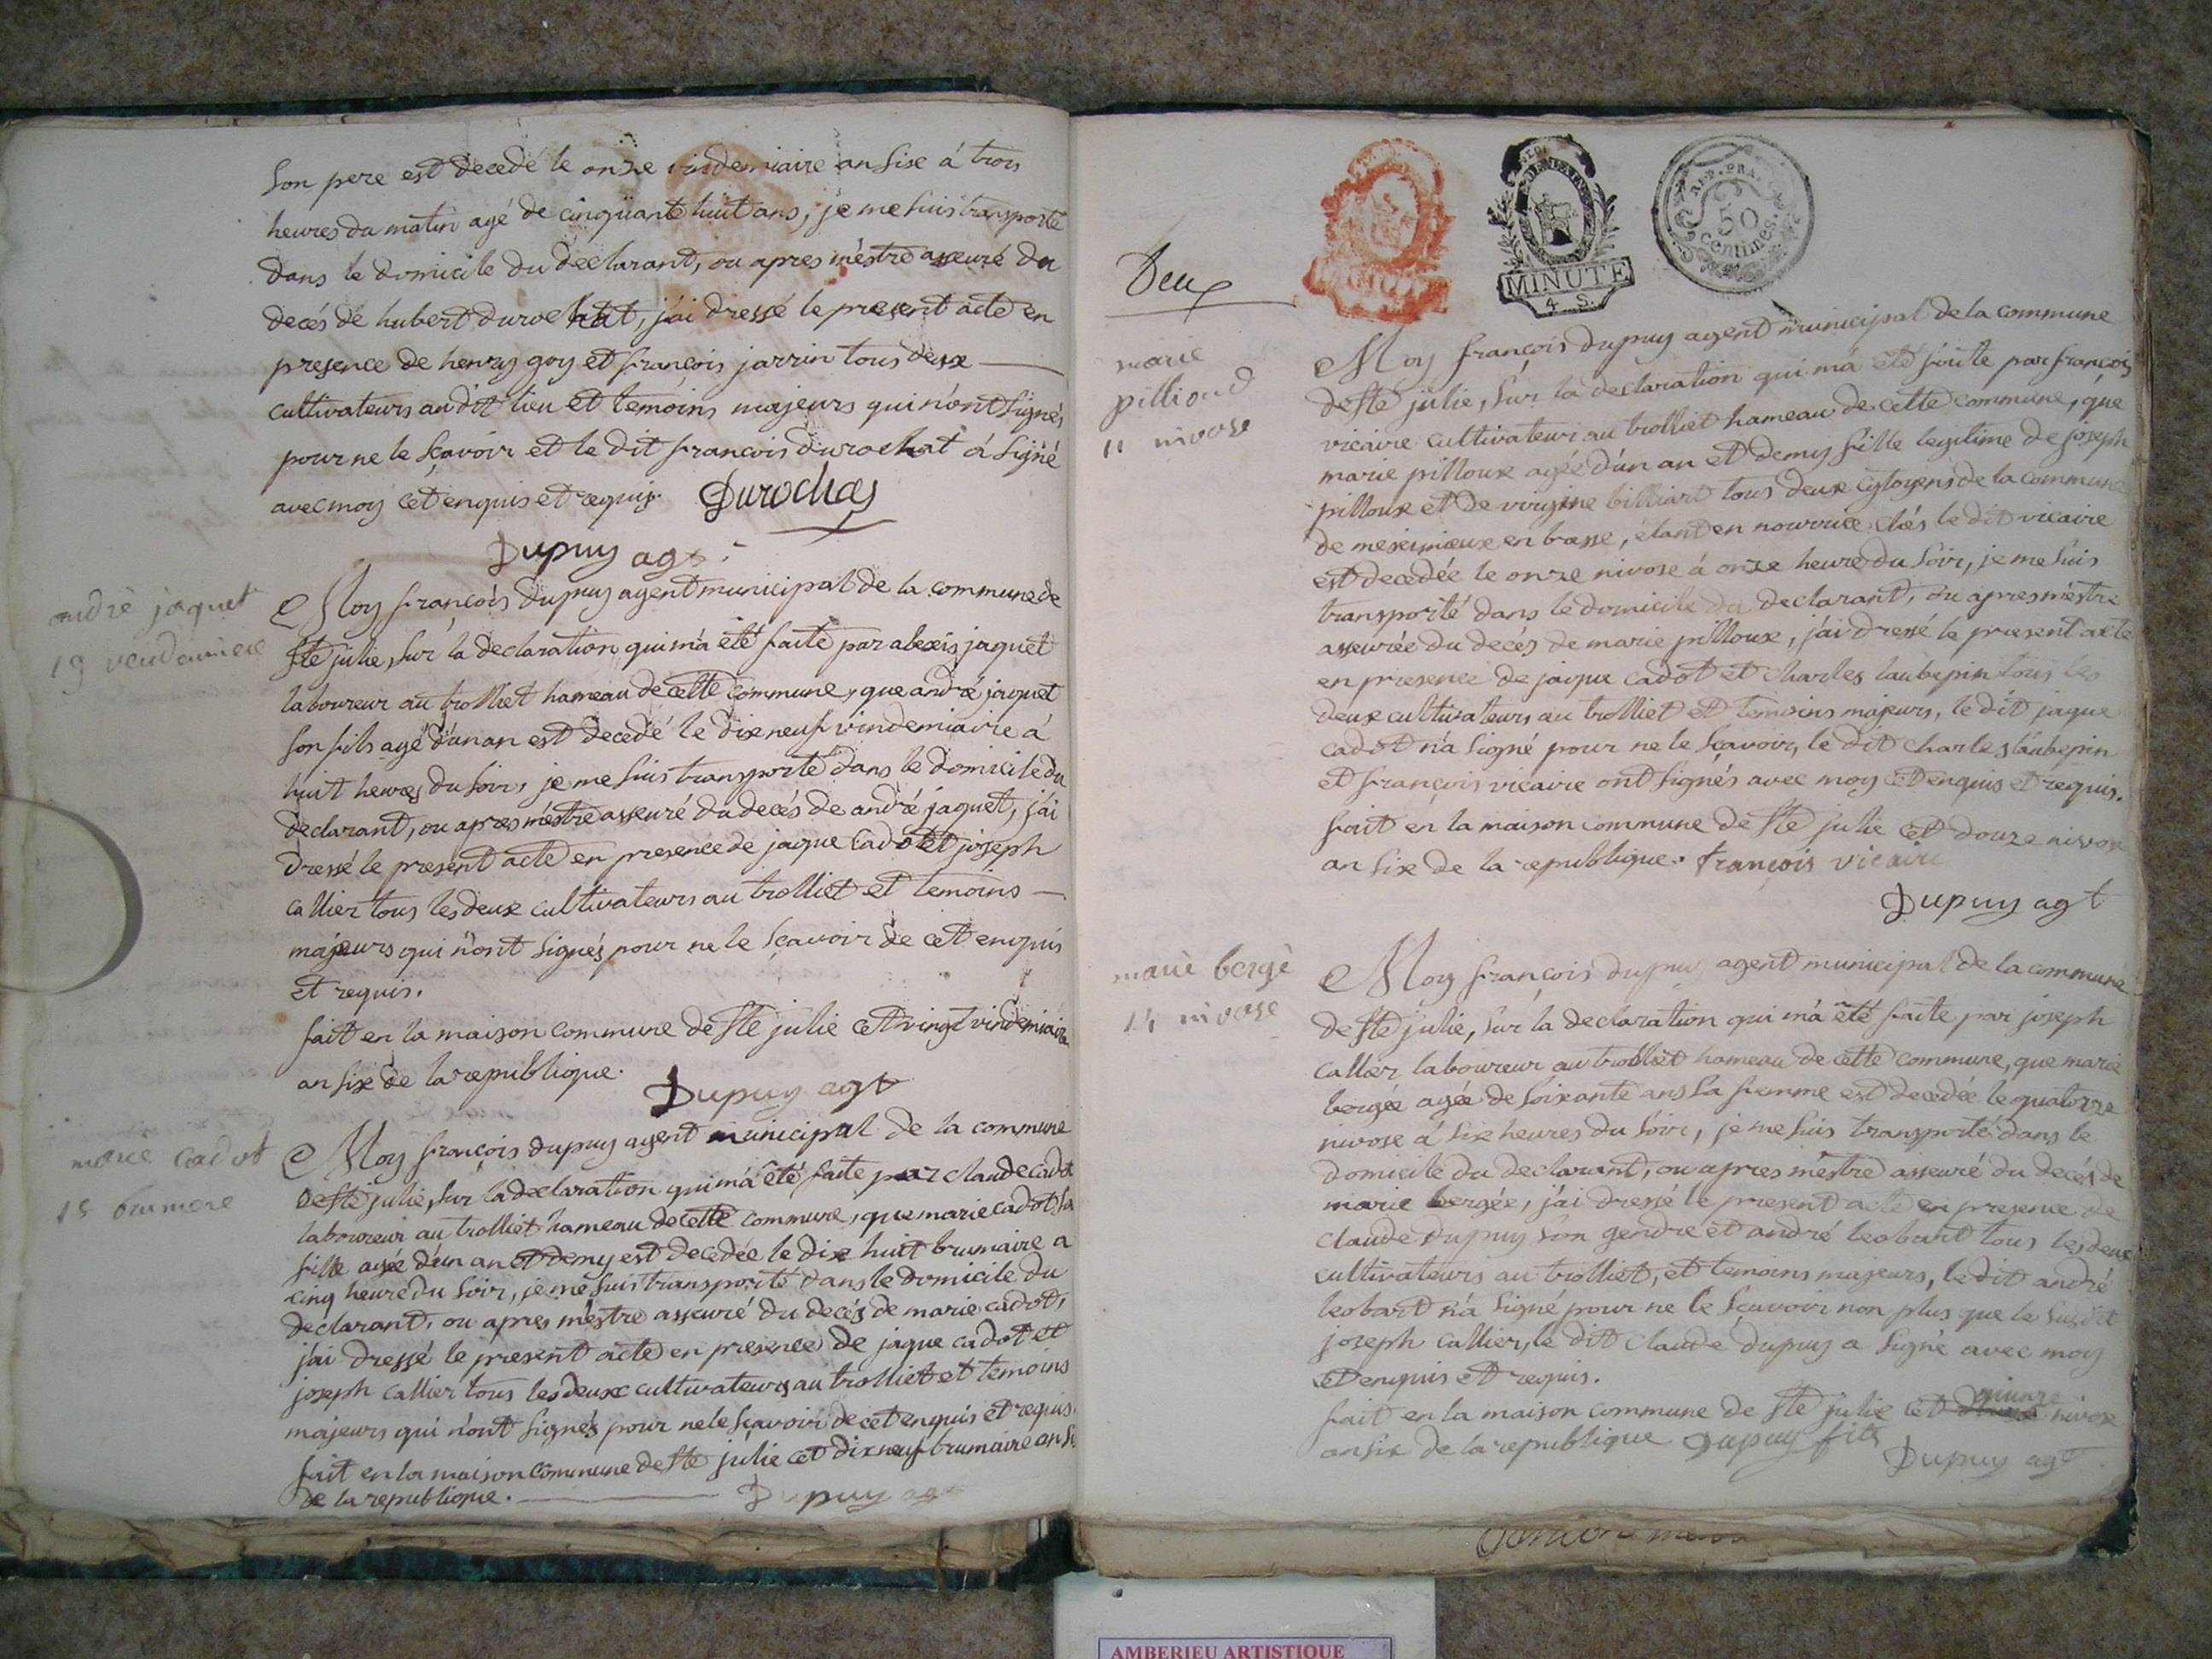 son pere est decedé le onze vindemiaire an sixe á trois
heures du matin agé de cinquante huit ans, je me suis transporté
dans le domicile du declarant, ou apres m'éstre asseuré du
decés de hubert durochat, j'ai dressé le present acte en
presence de henry goy et françois jarrin tous deux
cultivateurs au dit lieu et temoins majeurs qui n'ont signés
pour ne le sçavoir et le dit françois durochat á signé
avec moy cet enquis et requis. Durochas
Dupuy agt
andré jaquet
19 vendemiere
Moy françois dupuy agent municipal de la commune de
ste julie, sur la declaration qui m'a été faite par alexis jaquet
laboureur au trolliet hameau de cette commune, que andré jaquet
son fils agé d'un an est decedé le dixe neuf vindemiaire á
huit heures du soir, je me suis transporté dans le domicile du
declarant, ou apres m'éstre asseuré du decés de andré jaquet, j'ai
dressé le present acte en presence de jaque cadot et joseph
callier tous les deux cultivateurs au trolliet et temoins
majeurs qui n'ont signés pour ne le sçavoir de cet enquis
et requis.
fait en la maison commune de ste julie cet vingt vindemiaire
an sixe de la republique. Dupuy agt
marie cadot
18 brumere
Moy françois dupuy agent municipal de la commune
de ste julie, sur la declaration qui m'a été faite par claude cadot
laboureur au trolliet hameau de cette commune, que marie cadot sa
fille agée d'un an et demy est decedée le dixe huit brumaire a
cinq heure du soir, je me suis transporté dans le domicile du
declarant, ou apres m'éstre asseuré du decés de marie cadot,
j'ai dressé le present acte en presence de jaque cadot et
joseph callier tous les deux cultivateurs au trolliet et temoins
majeurs qui n'ont signés pour ne le sçavoir de cet enquis et requis.
fait en la maison commune de ste julie cet dixe neuf brumaire an si
de la republique. Dupuy ag
MINUTE
4. S.
REP. FRA.
50
Centimes.
Deux
marie
pillioud
11 nivose
Moy françois dupuy agent municipal de la commune
de ste julie, sur la declaration qui m'a été faite par françois
vicaire cultivateur au trolliet hameau de cette commune, que
marie pilloux agée d'un an et demy fille legitime de joseph
pilloux et de virgine billiart tous deux cytoyens de la commune
de meximieux en brasse, étant en nourrice chés le dit vicaire
est decedée le onze nivose á onze heure du soir, je me suis
transporté dans le domicile du declarant, ou apres m'éstre
asseurée du decés de marie pilloux, j'ai dressé le present acte
en presence de jaque cadot et charles laubepin tous les
deux cultivateurs au trolliet et temoins majeurs, le dit jaque
cadot n'a signé pour ne le sçavoir, le dit charles laubepin
et françois vicaire ont signés avec moy cet enquis et requis.
fait en la maison commune de ste julie cet douze nivose
an sixe de la republique. françois vicaire
Dupuy agt
marie bergé
14 nivose
Moy françois dupuy agent municipal de la commune
de ste julie, sur la declaration qui m'a été faite par joseph
callier laboureur au trolliet hameau de cette commune, que marie
bergée agée de soixante ans sa femme est decedée le quatorze
nivose á sixe heures du soir, je me suis transporté dans le
domicile du declarant, ou apres m'éstre asseuré du decés de
marie bergée, j'ai dressé le present acte en presence de
claude dupuy son gendre et andré leobart tous les deux
cultivateurs au trolliet, et temoins majeurs, le dit andré
leobart n'a signé pour ne le sçavoir non plus que le susdit
joseph callier, le dit claude dupuy a signé avec moy
cet enquis et requis.
fait en la maison commune de ste julie cet quinze nivose
an sixe de la republique Dupuy fils
Dupuy agt
AMBERIEU ARTISTIQUE